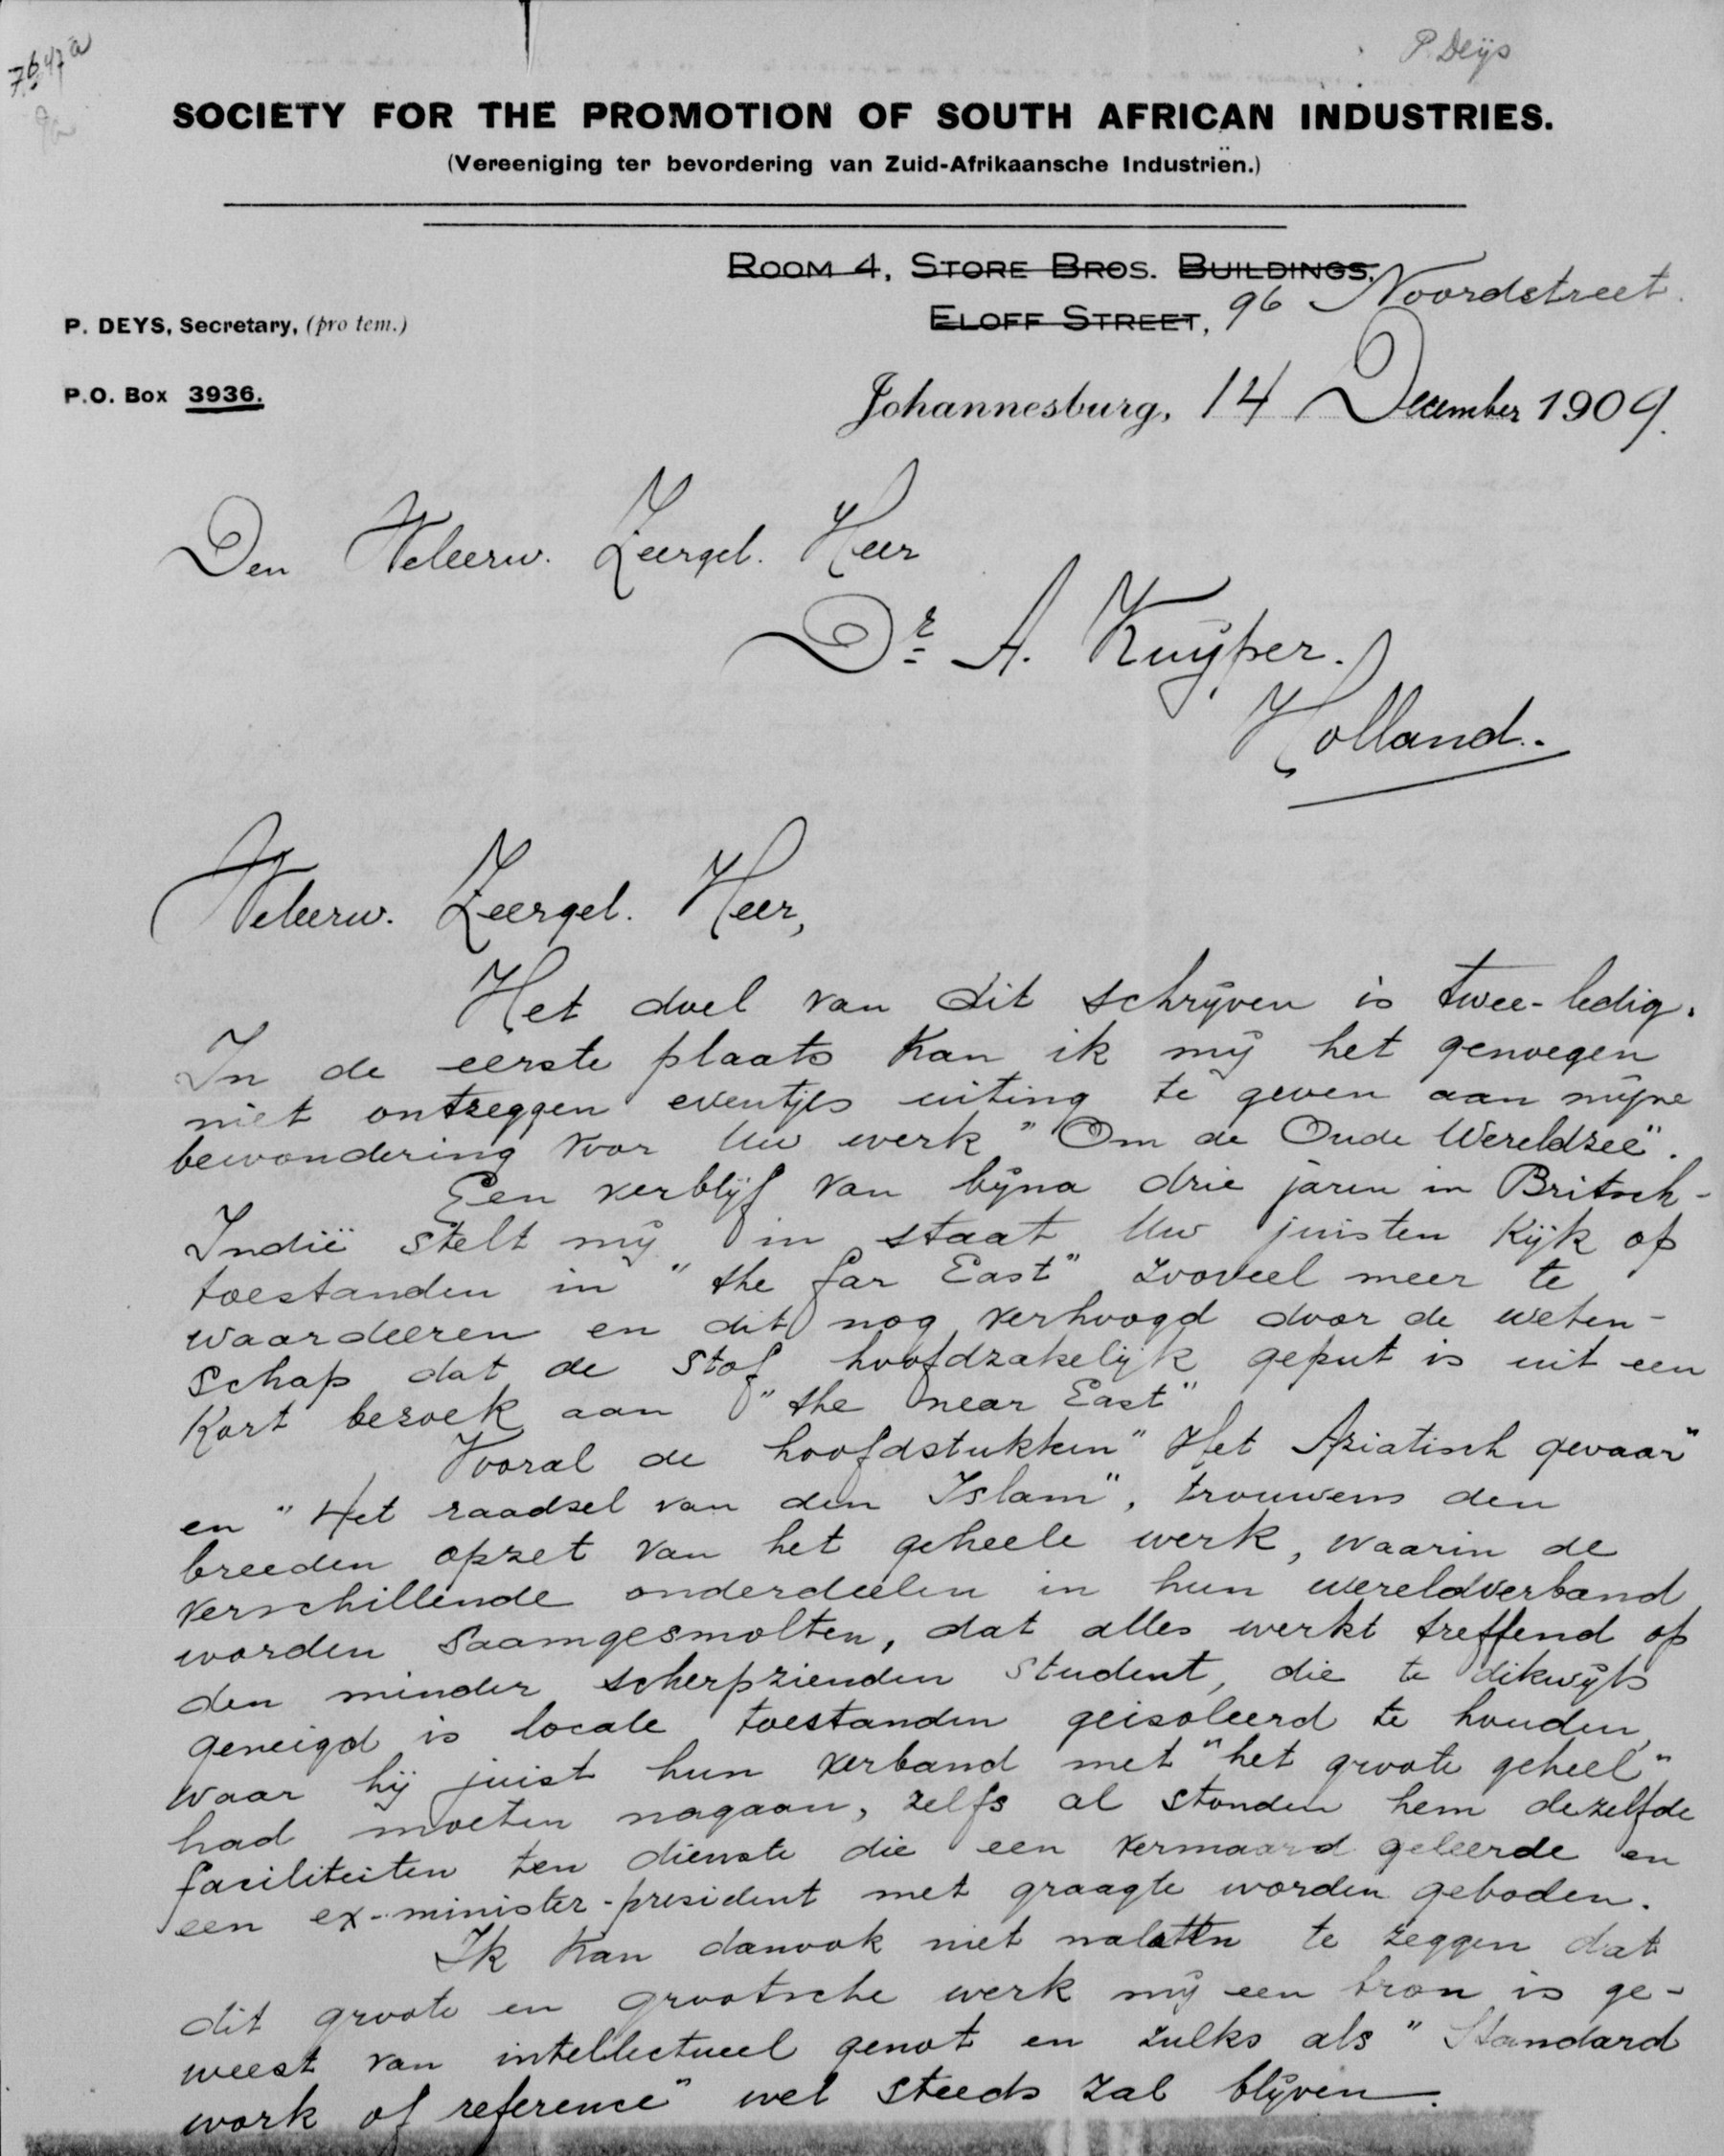 7647a
P. Deijs
SOCIETY FOR THE PROMOTION OF SOUTH AFRICAN INDUSTRIES.
(Vereeniging ter bevordering van Zuid-Afrikaansche Industriën.)
ROOM 4, STORE BROS. BUILDINGS,
ELOFF STREET, 96 Noordstreet.
P. DEYS, Secretary, (pro tem.)
P.O. Box 3936.
Johannesburg, 14 December 1909.
Den Weleerw. Zeergel. Heer
Dr A. Kuijper.
Holland.
Weleerw. Zeergel. Heer,
Het doel van dit schrijven is twee-ledig.
In de eerste plaats kan ik mij het genoegen
niet ontzeggen eventjes uiting te geven aan mijne
bewondering voor Uw werk "Om de Oude Wereldzee".
Een verblijf van bijna drie jaren in Britsch-
Indië stelt mij in staat Uw juisten kijk op
toestanden in "the far East" zooveel meer te
waardeeren en dit nog verhoogd door de weten-
schap dat de stof hoofdzakelijk geput is uit een
kort bezoek aan "the near East"
Vooral de hoofdstukken "Het Aziatisch gevaar"
en "Het raadsel van den Islam", trouwens den
breeden opzet van het geheele werk, waarin de
verschillende onderdeelen in hun wereldverband
worden saamgesmolten, dat alles werkt treffend op
den minder scherpzienden student, die te dikwijls
geneigd is locale toestanden geisoleerd te houden,
waar hij juist hun verband met "het groote geheel"
had moeten nagaan, zelfs al stonden hem dezelfde
faciliteiten ten dienste die een vermaard geleerde en
een ex-minister-president met graagte worden geboden.
Ik kan danook niet nalaten te zeggen dat
dit groote en grootsche werk mij een bron is ge-
weest van intellectueel genot en zulks als "Standard
work of reference" wel steeds zal blijven.